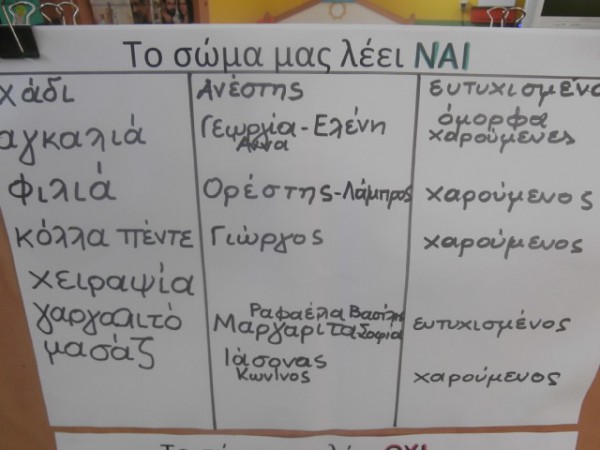 Το σώμα μας λέει ΝΑΙ
χάδι Ανέστης ευτυχισμένο
αγκαλιά Γεωργία-Ελένη Άννα όμορφα χαρούμενες
φιλιά Ορέστης-Λάμπρος χαρούμενος
κόλλα πέντε Γιώργος χαρούμενος
χειραψία
γαργαλιτό Ραφαέλα Βασίλης Μαργαρίτα Σοφία ευτυχισμένος
μασάζ Ιάσονας Κων/νος χαρούμενος